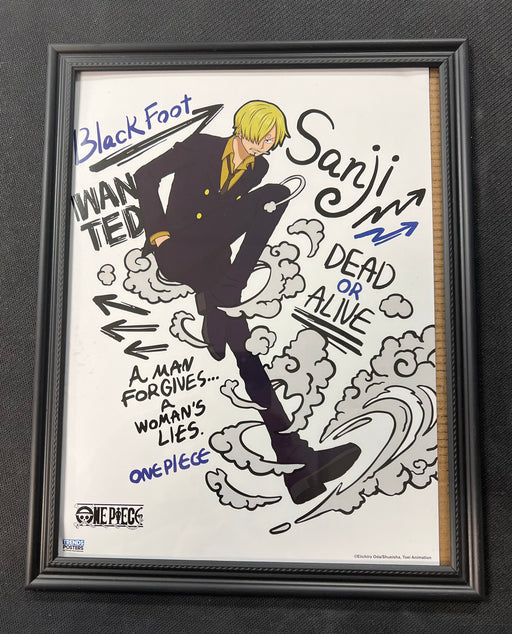 Black Foot
Sanji
WAN
TED
DEAD
OR
ALIVE
A MAN
FORGIVES...
A
WOMAN'S
LIES.
ONE PIECE
ONE PIECE
TRENDS
POSTERS
©Eiichiro Oda/Shueisha, Toei Animation